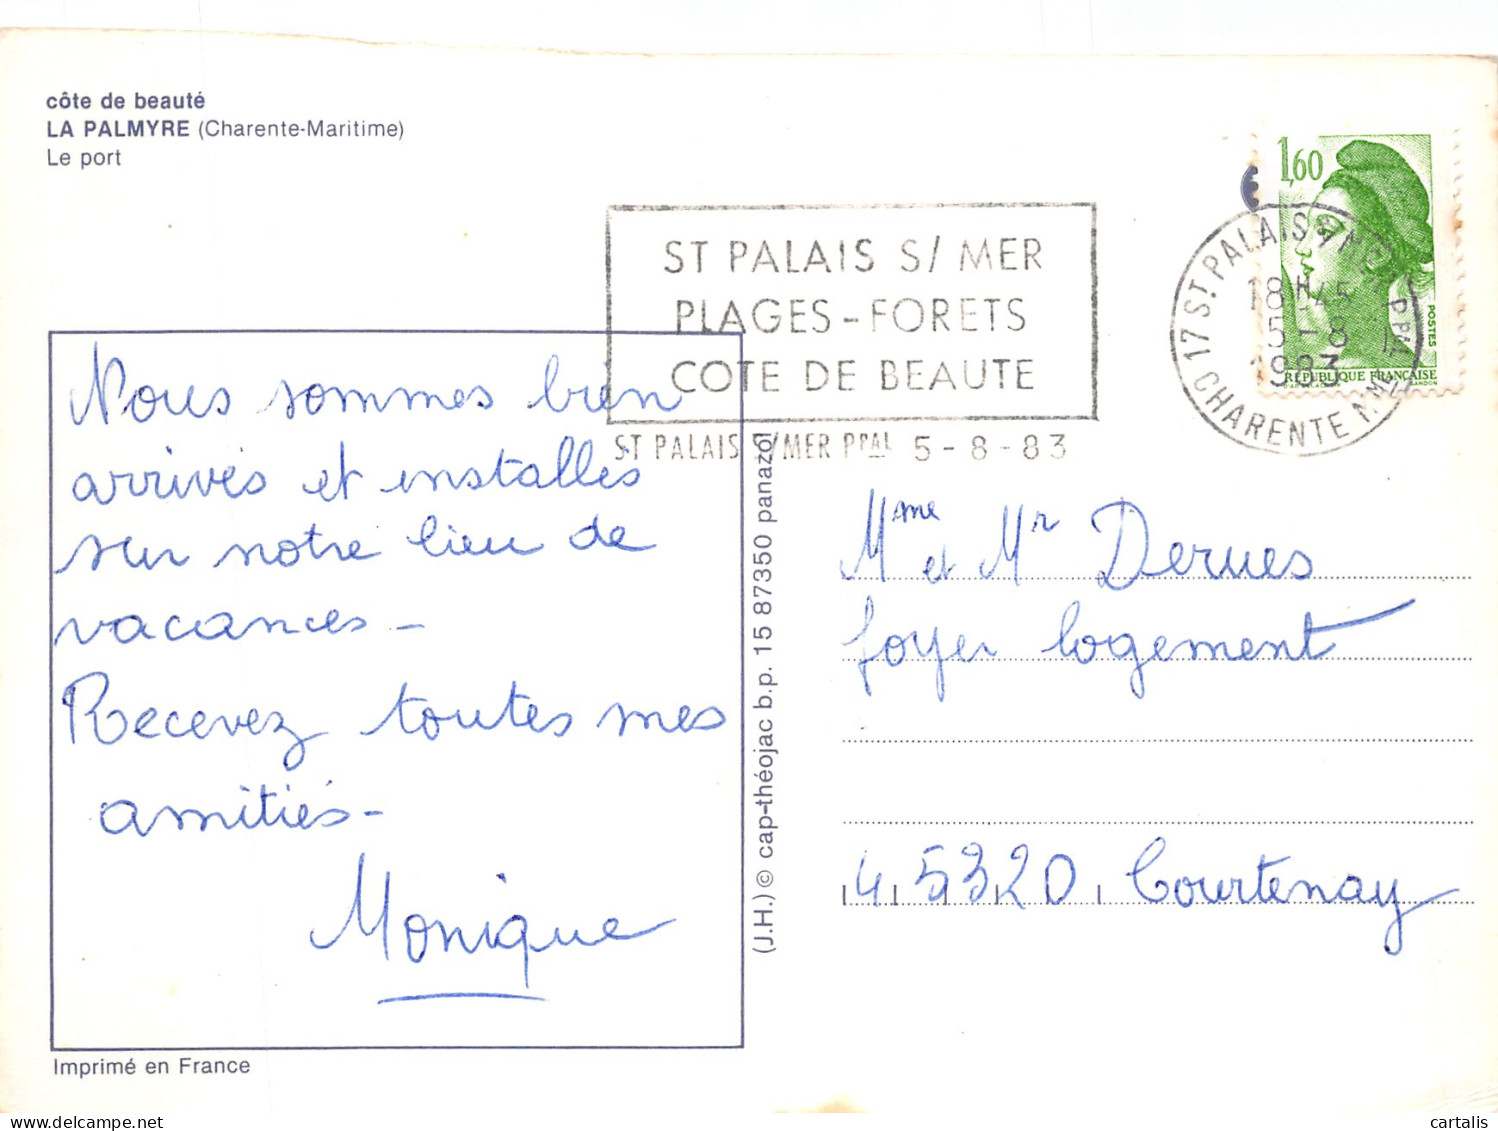 côte de beauté
LA PALMYRE (Charente-Maritime)
Le port
1,60
POSTES
RÉPUBLIQUE FRANÇAISE
ST PALAIS S/ MER
PLAGES - FORETS
COTE DE BEAUTE
ST PALAIS S/MER PPAL 5 - 8 - 83
17 ST PALAIS S/MER PPAL
18H45
5 - 8
1983
CHARENTE MME
Nous sommes bien
arrivés et installés
sur notre lieu de
vacances -
Recevez toutes mes
amitiés -
Monique
(J.H.) © cap-théojac b.p. 15 87350 panazol
Mme et Mr Derues
foyer logement
45320 Courtenay
Imprimé en France
cartalis